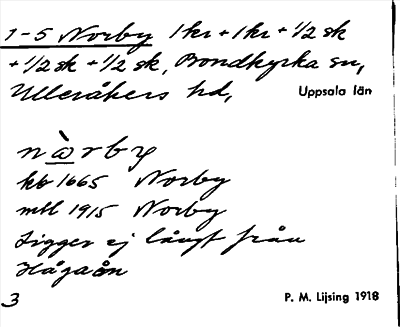 1-5 Norby 1 kr + 1 kr + 1/2 sk
+ 1/2 sk + 1/2 sk, Bondkyrka sn,
Ulleråkers hd, Uppsala län
nòrby
kb 1665 Norby
mtl 1915 Norby
Ligger ej långt från
Hågaån
3 P. M. Lijsing 1918